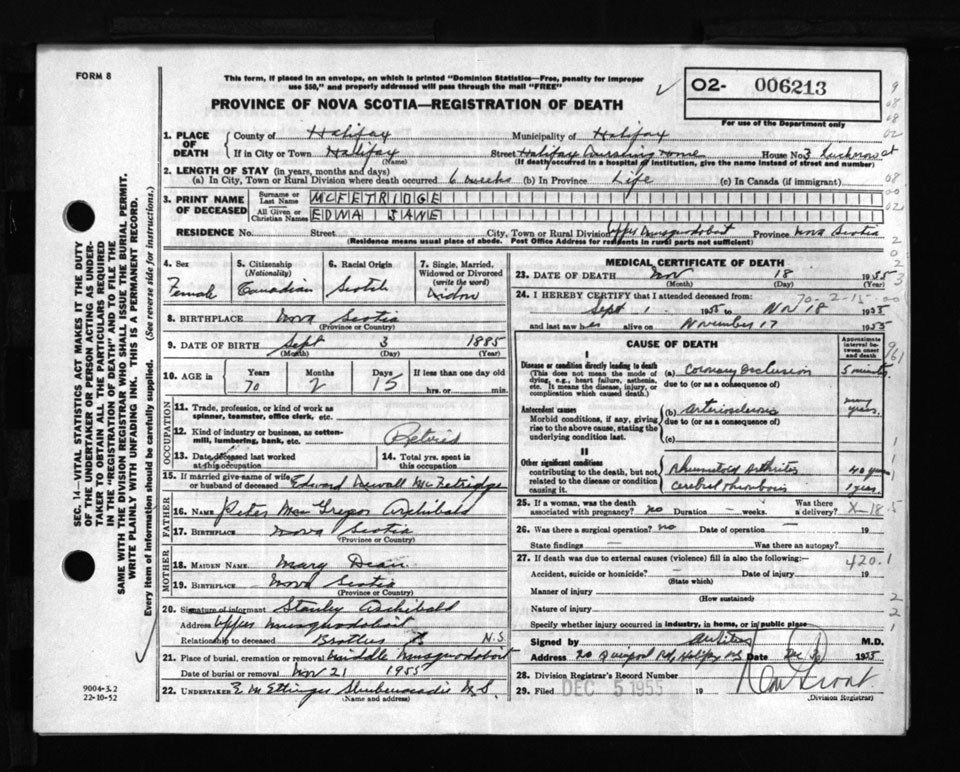 FORM 8
This form, if placed in an envelope, on which is printed "Dominion Statistics—Free, penalty for improper
use $50," and properly addressed will pass through the mail "FREE"
PROVINCE OF NOVA SCOTIA—REGISTRATION OF DEATH
O2- 006213
For use of the Department only
1. PLACE OF DEATH
County of Halifax Municipality of Halifax
If in City or Town Halifax Street Halifax Nursing Home House No. 3
(Name) (If death occurred in a hospital or institution, give the name instead of street and number)
2. LENGTH OF STAY (in years, months and days)
(a) In City, Town or Rural Division where death occurred 6 weeks (b) In Province Life (c) In Canada (if immigrant)
3. PRINT NAME OF DECEASED
Surname or Last Name MCFETRIDGE
All Given or Christian Names EDNA JANE
RESIDENCE No. Street City, Town or Rural Division Upper Musquodoboit Province Nova Scotia
(Residence means usual place of abode. Post Office Address for residents in rural parts not sufficient)
4. Sex
Female
5. Citizenship
(Nationality)
Canadian
6. Racial Origin
Scotch
7. Single, Married, Widowed or Divorced
(write the word)
Widow
8. BIRTHPLACE Nova Scotia
(Province or Country)
9. DATE OF BIRTH Sept 3 1885
(Month) (Day) (Year)
10. AGE in Years Months Days If less than one day
70 2 15 hrs. or min.
OCCUPATION
11. Trade, profession, or kind of work as
spinner, teamster, office clerk, etc.
12. Kind of industry or business, as cotton-
mill, lumbering, bank, etc. Retired
13. Date deceased last worked
at this occupation
14. Total yrs. spent in
this occupation
15. If married give-name of wife
or husband of deceased Edward McFetridge
FATHER
16. NAME Peter MacGregor Archibald
17. BIRTHPLACE Nova Scotia
(Province or Country)
MOTHER
18. MAIDEN NAME Mary Dean
19. BIRTHPLACE Nova Scotia
(Province or Country)
20. Signature of informant Stanley Archibald
Address Upper Musquodoboit
Relationship to deceased Brother N.S.
21. Place of burial, cremation or removal Middle Musquodoboit
Date of burial or removal Nov 21 1955
22. UNDERTAKER E M Ettinger Shubenacadie N.S.
(Name and address)
MEDICAL CERTIFICATE OF DEATH
23. DATE OF DEATH Nov 18 1955
(Month) (Day)
24. I HEREBY CERTIFY that I attended deceased from 70-2-15-00
Sept 1 1955 to Nov 18 1955
and last saw her alive on November 17 1955
CAUSE OF DEATH
Approximate interval between onset and death
I
Disease or condition directly leading to death
(This does not mean the mode of
dying, e.g., heart failure, asthenia,
etc. It means the disease, injury, or
complication which caused death.)
(a) Coronary occlusion 5 minutes
due to (or as a consequence of)
Antecedent causes
Morbid conditions, if any, giving
rise to the above cause, stating the
underlying condition last.
(b) Arteriosclerosis many years
due to (or as a consequence of)
(c)
II
Other significant conditions
contributing to the death, but not
related to the disease or condition
causing it.
Rheumatoid Arthritis 40 years
Cerebral thrombosis 1 year
25. If a woman, was the death
associated with pregnancy? no Duration – weeks. Was there
a delivery? X-18.5
26. Was there a surgical operation? no Date of operation —
State findings — Was there an autopsy?
27. If death was due to external causes (violence) fill in also the following:—
420.1
Accident, suicide or homicide? – Date of injury 19
(State which)
Manner of injury
(How sustained)
Nature of injury
Specify whether injury occurred in industry, in home, or in public place
Signed by M.D.
Address 20 Quinpool Rd, Halifax NS Date Dec 1955
28. Division Registrar's Record Number
29. Filed DEC 5 1955 19
(Division Registrar)
SEC. 14—VITAL STATISTICS ACT MAKES IT THE DUTY
OF THE UNDERTAKER OR PERSON ACTING AS UNDER-
TAKER TO OBTAIN ALL THE PARTICULARS REQUIRED
IN THE "REGISTRATION OF DEATH" AND TO FILE THE
SAME WITH THE DIVISION REGISTRAR WHO SHALL ISSUE THE BURIAL PERMIT.
WRITE PLAINLY WITH UNFADING INK. THIS IS A PERMANENT RECORD.
Every item of information should be carefully supplied. (See reverse side for instructions.)
9004-3.2
22-10-52